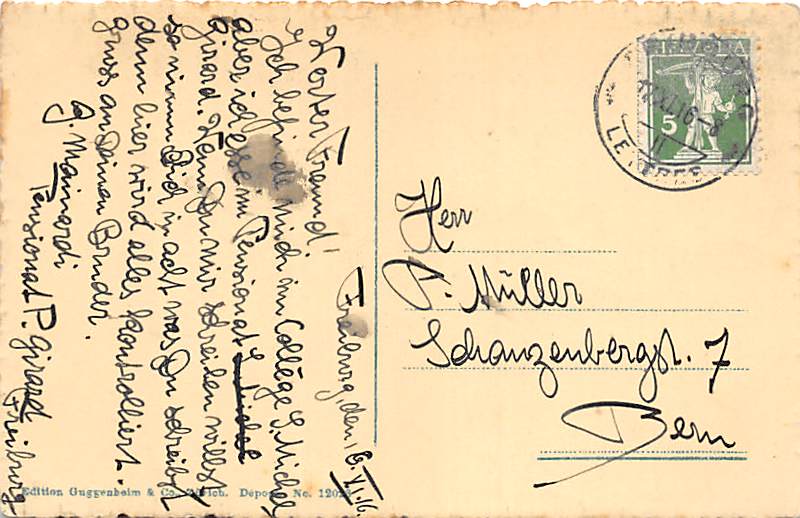 Freiburg, den 16.XI.16.
Werter Freund!
Ich befinde mich im Collège S. Michel
aber ich esse im Pensionat S. Michel
Girard. Wenn Du mir schreiben willst
so nimm Dich in acht was Du schreibst
denn hier wird alles kontrolliert.
Gruss an Deinen Bruder.
G. Mainardi
Pensionat P. Girard
Freiburg
HELVETIA
5
16-8
LETTRES
Herr
P. Müller
Schanzenbergst. 7
Bern
Edition Guggenheim & Co., Zürich. Dépose No.